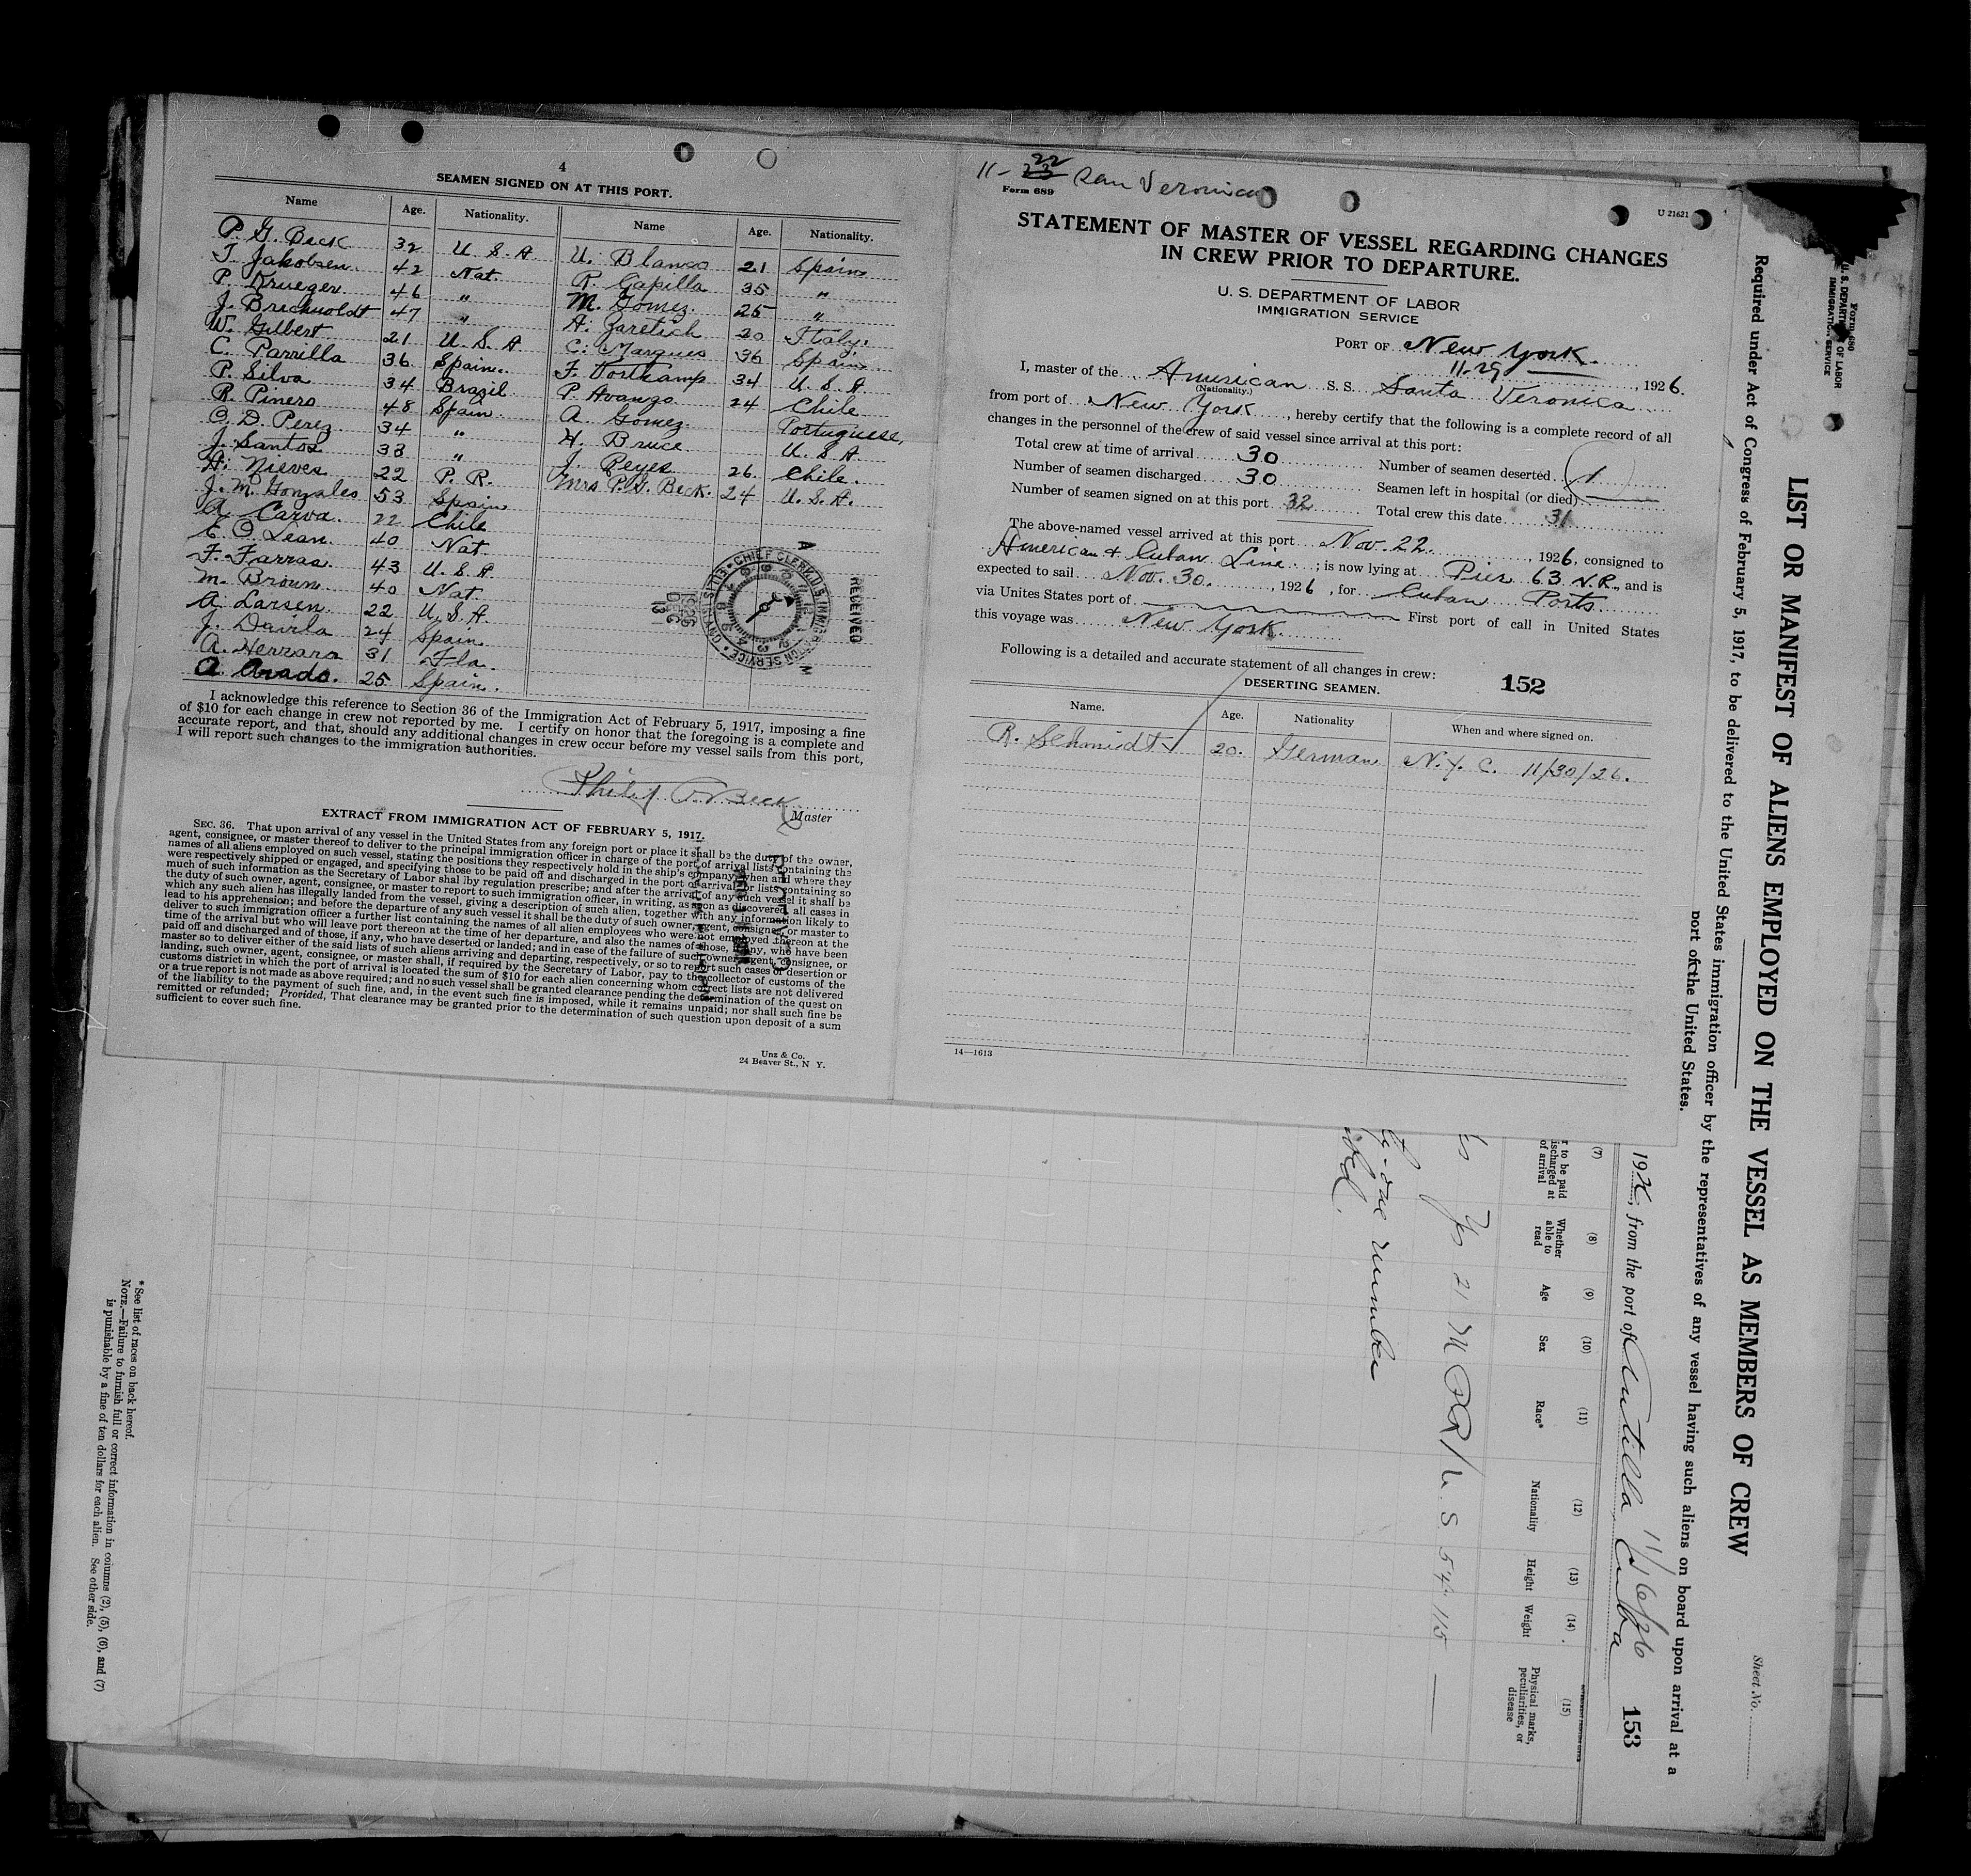 4
SEAMEN SIGNED ON AT THIS PORT.
Name Age. Nationality. Name Age. Nationality.
P. G. Beck 32 U. S. A
T. Jakobsen. 42 Nat.
P. Krueger. 46 "
J. Brechwoldt 47 "
W. Gilbert 21 U. S. A
C. Parrilla 36 Spain.
P. Silva 34 Brazil
R. Pinero 48 Spain
O. D. Perez 34 "
J. Santos 33 "
A. Nieves 22 P. R.
J. M. Gonzales 53 Spain
A. Carva. 22 Chile
E. O. Lean. 40 Nat.
F. Farras 43 U. S. A.
M. Brown. 40 Nat.
A. Larsen. 22 U. S. A
J. Davila 24 Spain.
A. Herrara 31 Fla.
A. Arado. 25 Spain.
U. Blanco 21 Spain
R. Capilla 35 "
M. Gomez. 25 "
A. Zaretich 20 Italy.
C. Marques 36 Spain.
F. Vortkamp 34 U. S. A
P. Avango 24 Chile
A Gomez. Portuguese.
H. Bruce. U. S. A.
J. Reyes 26 Chile.
Mrs P. G. Beck. 24 U. S. A.
RECEIVED
CHIEF CLERK, U. S. IMMIGRATION SERVICE
1926 DEC 13
I acknowledge this reference to Section 36 of the Immigration Act of February 5, 1917, imposing a fine
of $10 for each change in crew not reported by me. I certify on honor that the foregoing is a complete and
accurate report, and that, should any additional changes in crew occur before my vessel sails from this port,
I will report such changes to the immigration authorities.
Philip G. Beck
Master
EXTRACT FROM IMMIGRATION ACT OF FEBRUARY 5, 1917.
SEC. 36. That upon arrival of any vessel in the United States from any foreign port or place it shall be the duty of the owner,
agent, consignee, or master thereof to deliver to the principal immigration officer in charge of the port of arrival lists containing the
names of all aliens employed on such vessel, stating the positions they respectively hold in the ship's company, when and where they
were respectively shipped or engaged, and specifying those to be paid off and discharged in the port of arrival; or lists containing so
much of such information as the Secretary of Labor shal lby regulation prescribe; and after the arrival of any such vessel it shall be
the duty of such owner, agent, consignee, or master to report to such immigration officer, in writing, as soon as discovered, all cases in
which any such alien has illegally landed from the vessel, giving a description of such alien, together with any information likely to
lead to his apprehension; and before the departure of any such vessel it shall be the duty of such owner, agent, consignee, or master to
deliver to such immigration officer a further list containing the names of all alien employees who were not employed thereon at the
time of the arrival but who will leave port thereon at the time of her departure, and also the names of those, if any, who have been
paid off and discharged and of those, if any, who have deserted or landed; and in case of the failure of such owner, agent, consignee, or
master so to deliver either of the said lists of such aliens arriving and departing, respectively, or so to report such cases of desertion or
landing, such owner, agent, consignee, or master shall, if required by the Secretary of Labor, pay to the collector of customs of the
customs district in which the port of arrival is located the sum of $10 for each alien concerning whom correct lists are not delivered
or a true report is not made as above required; and no such vessel shall be granted clearance pending the determination of the quest on
of the liability to the payment of such fine, and, in the event such fine is imposed, while it remains unpaid; nor shall such fine be
remitted or refunded; Provided, That clearance may be granted prior to the determination of such question upon deposit of a sum
sufficient to cover such fine.
Unz & Co.
24 Beaver St., N Y.
11-22 San Veronica
Form 689
U 21621
STATEMENT OF MASTER OF VESSEL REGARDING CHANGES
IN CREW PRIOR TO DEPARTURE.
U. S. DEPARTMENT OF LABOR
IMMIGRATION SERVICE
PORT OF New York.
11-29, 1926.
I, master of the American S. S. Santa Veronica
(Nationality.)
from port of New York, hereby certify that the following is a complete record of all
changes in the personnel of the crew of said vessel since arrival at this port:
Total crew at time of arrival 30 Number of seamen deserted 1
Number of seamen discharged 30 Seamen left in hospital (or died)
Number of seamen signed on at this port 32 Total crew this date 31
The above-named vessel arrived at this port Nov. 22., 1926, consigned to
American & Cuban Line; is now lying at Pier 63 N.R., and is
expected to sail Nov. 30., 1926, for Cuban Ports.
via Unites States port of First port of call in United States
this voyage was New York.
Following is a detailed and accurate statement of all changes in crew:
152
DESERTING SEAMEN.
Name. Age. Nationality When and where signed on.
R. Schmidt 20. German N. Y. C. 11/30/26.
14—1613
Form 680
U. S. DEPARTMENT OF LABOR
IMMIGRATION SERVICE
Sheet No.
LIST OR MANIFEST OF ALIENS EMPLOYED ON THE VESSEL AS MEMBERS OF CREW
Required under Act of Congress of February 5, 1917, to be delivered to the United States immigration officer by the representatives of any vessel having such aliens on board upon arrival at a
port of the United States.
1926, from the port of Antilla Cuba 11/16/26
153
(7) (8) (9) (10) (11) (12) (13) (14) (15)
r to be paid
ischarged at
of arrival
Whether
able to
read
Age
Sex
Race*
Nationality
Height
Weight
Physical marks,
peculiarities, or
disease
Yes 21 M P.R / U. S. 54 115 —
one number
*See list of races on back hereof.
NOTE.—Failure to furnish full or correct information in columns (2), (5), (6), and (7)
is punishable by a fine of ten dollars for each alien. See other side.